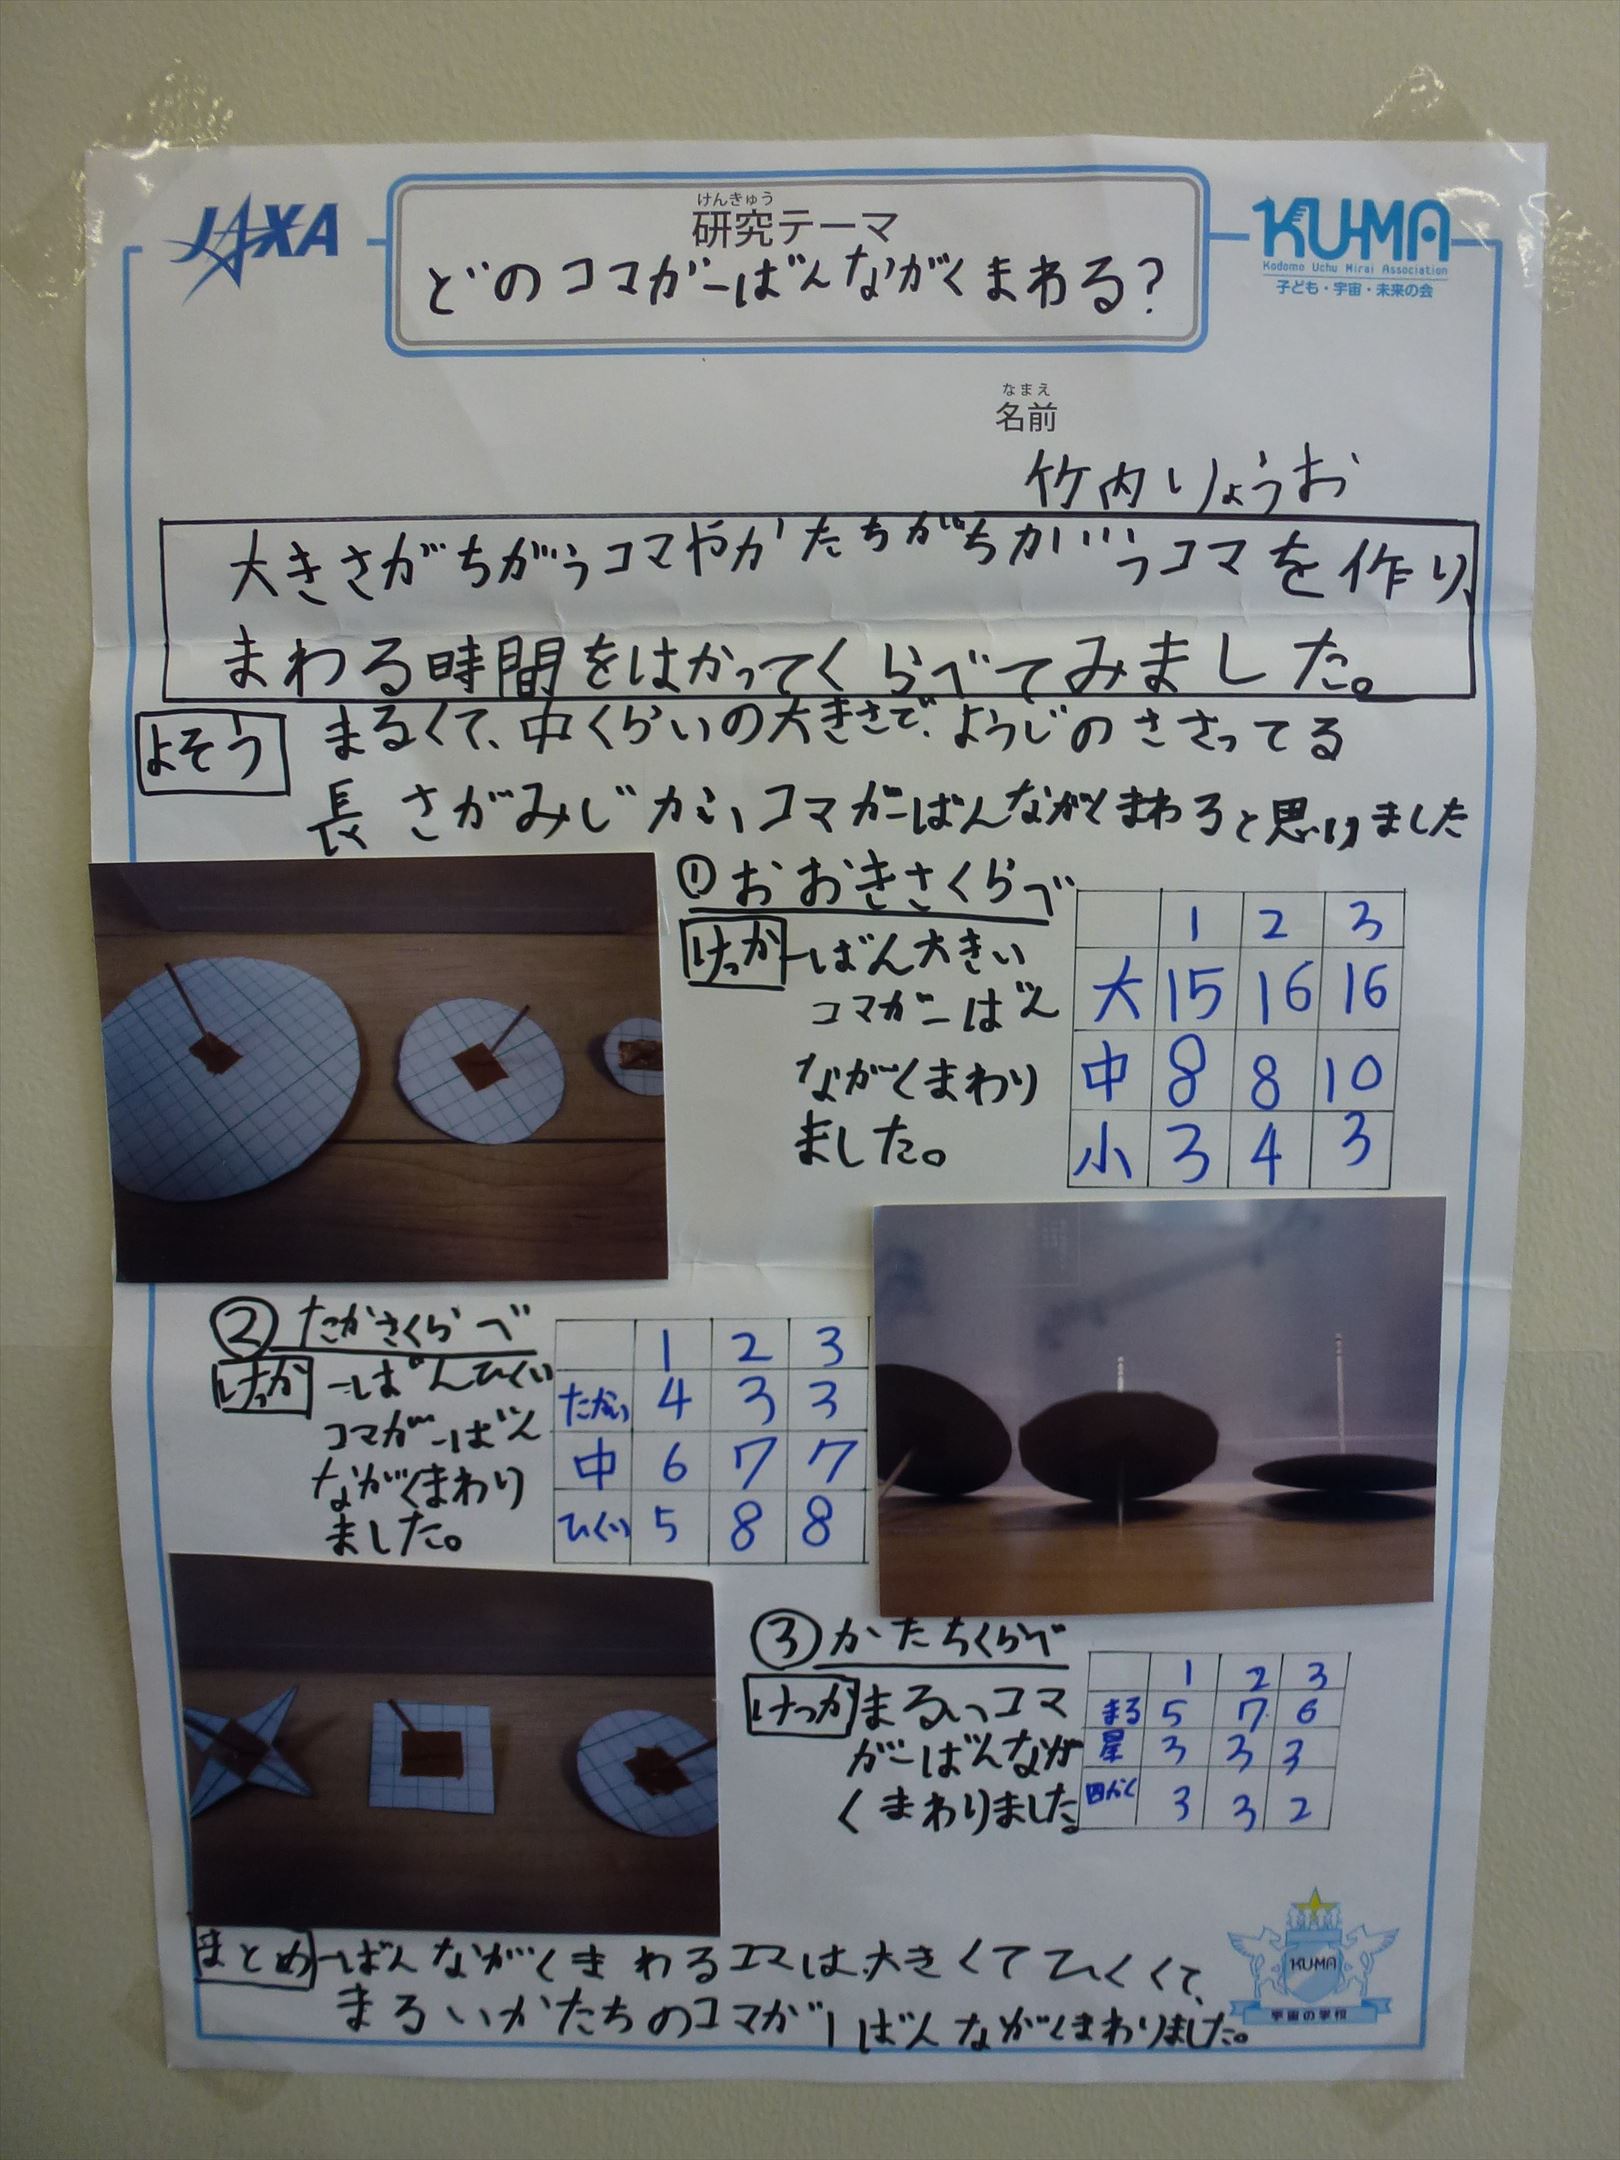 JAXA
けんきゅう
研究テーマ
どのコマが一ばんながくまわる?
KU-MA
Kodomo Uchu Mirai Association
子ども・宇宙・未来の会
なまえ
名前
竹内りょうお
大きさがちがうコマやかたちがちがいうコマを作り、
まわる時間をはかってくらべてみました。
よそう
まるくて、中くらいの大きさで、ようじのささってる
長さがみじかいコマが一ばんながくまわると思いました
①おおきさくらべ
けっか 一ばん大きい
コマが一ばん
ながくまわり
ました。
1 2 3
大 15 16 16
中 8 8 10
小 3 4 3
②たかさくらべ
けっか 一ぱんひくい
コマが一ばん
ながくまわり
ました。
1 2 3
たかい 4 3 3
中 6 7 7
ひくい 5 8 8
③かたちくらべ
けっか まるいコマ
が一ばんなが
くまわりました。
1 2 3
まる 5 7 6
星 3 3 3
四かく 3 3 2
まとめ 一ばんながくまわるコマは、大きくてひくくて、
まるいかたちのコマが一ばんながくまわりました。
KUMA
宇宙の学校